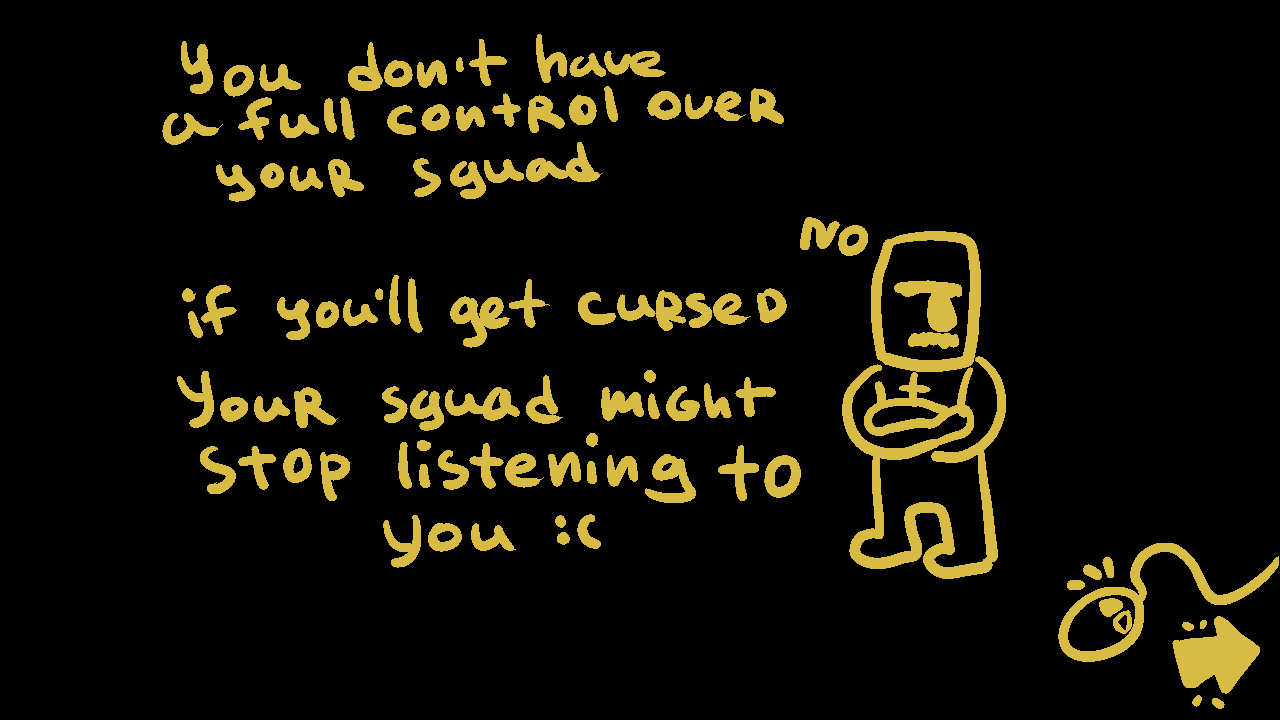 You don't have
a full control over
your squad
NO
if you'll get cursed
Your squad might
stop listening to
you :c